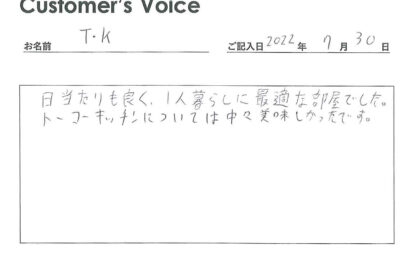 Customer's Voice
お名前 T・K ご記入日 2022 年 7 月 30 日
日当たりも良く、1人暮らしに最適な部屋でした。
トーコーキッチンについては中々美味しかったです。